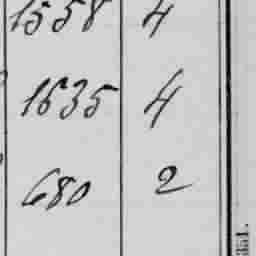 1558 4
1635 4
680 2
351.